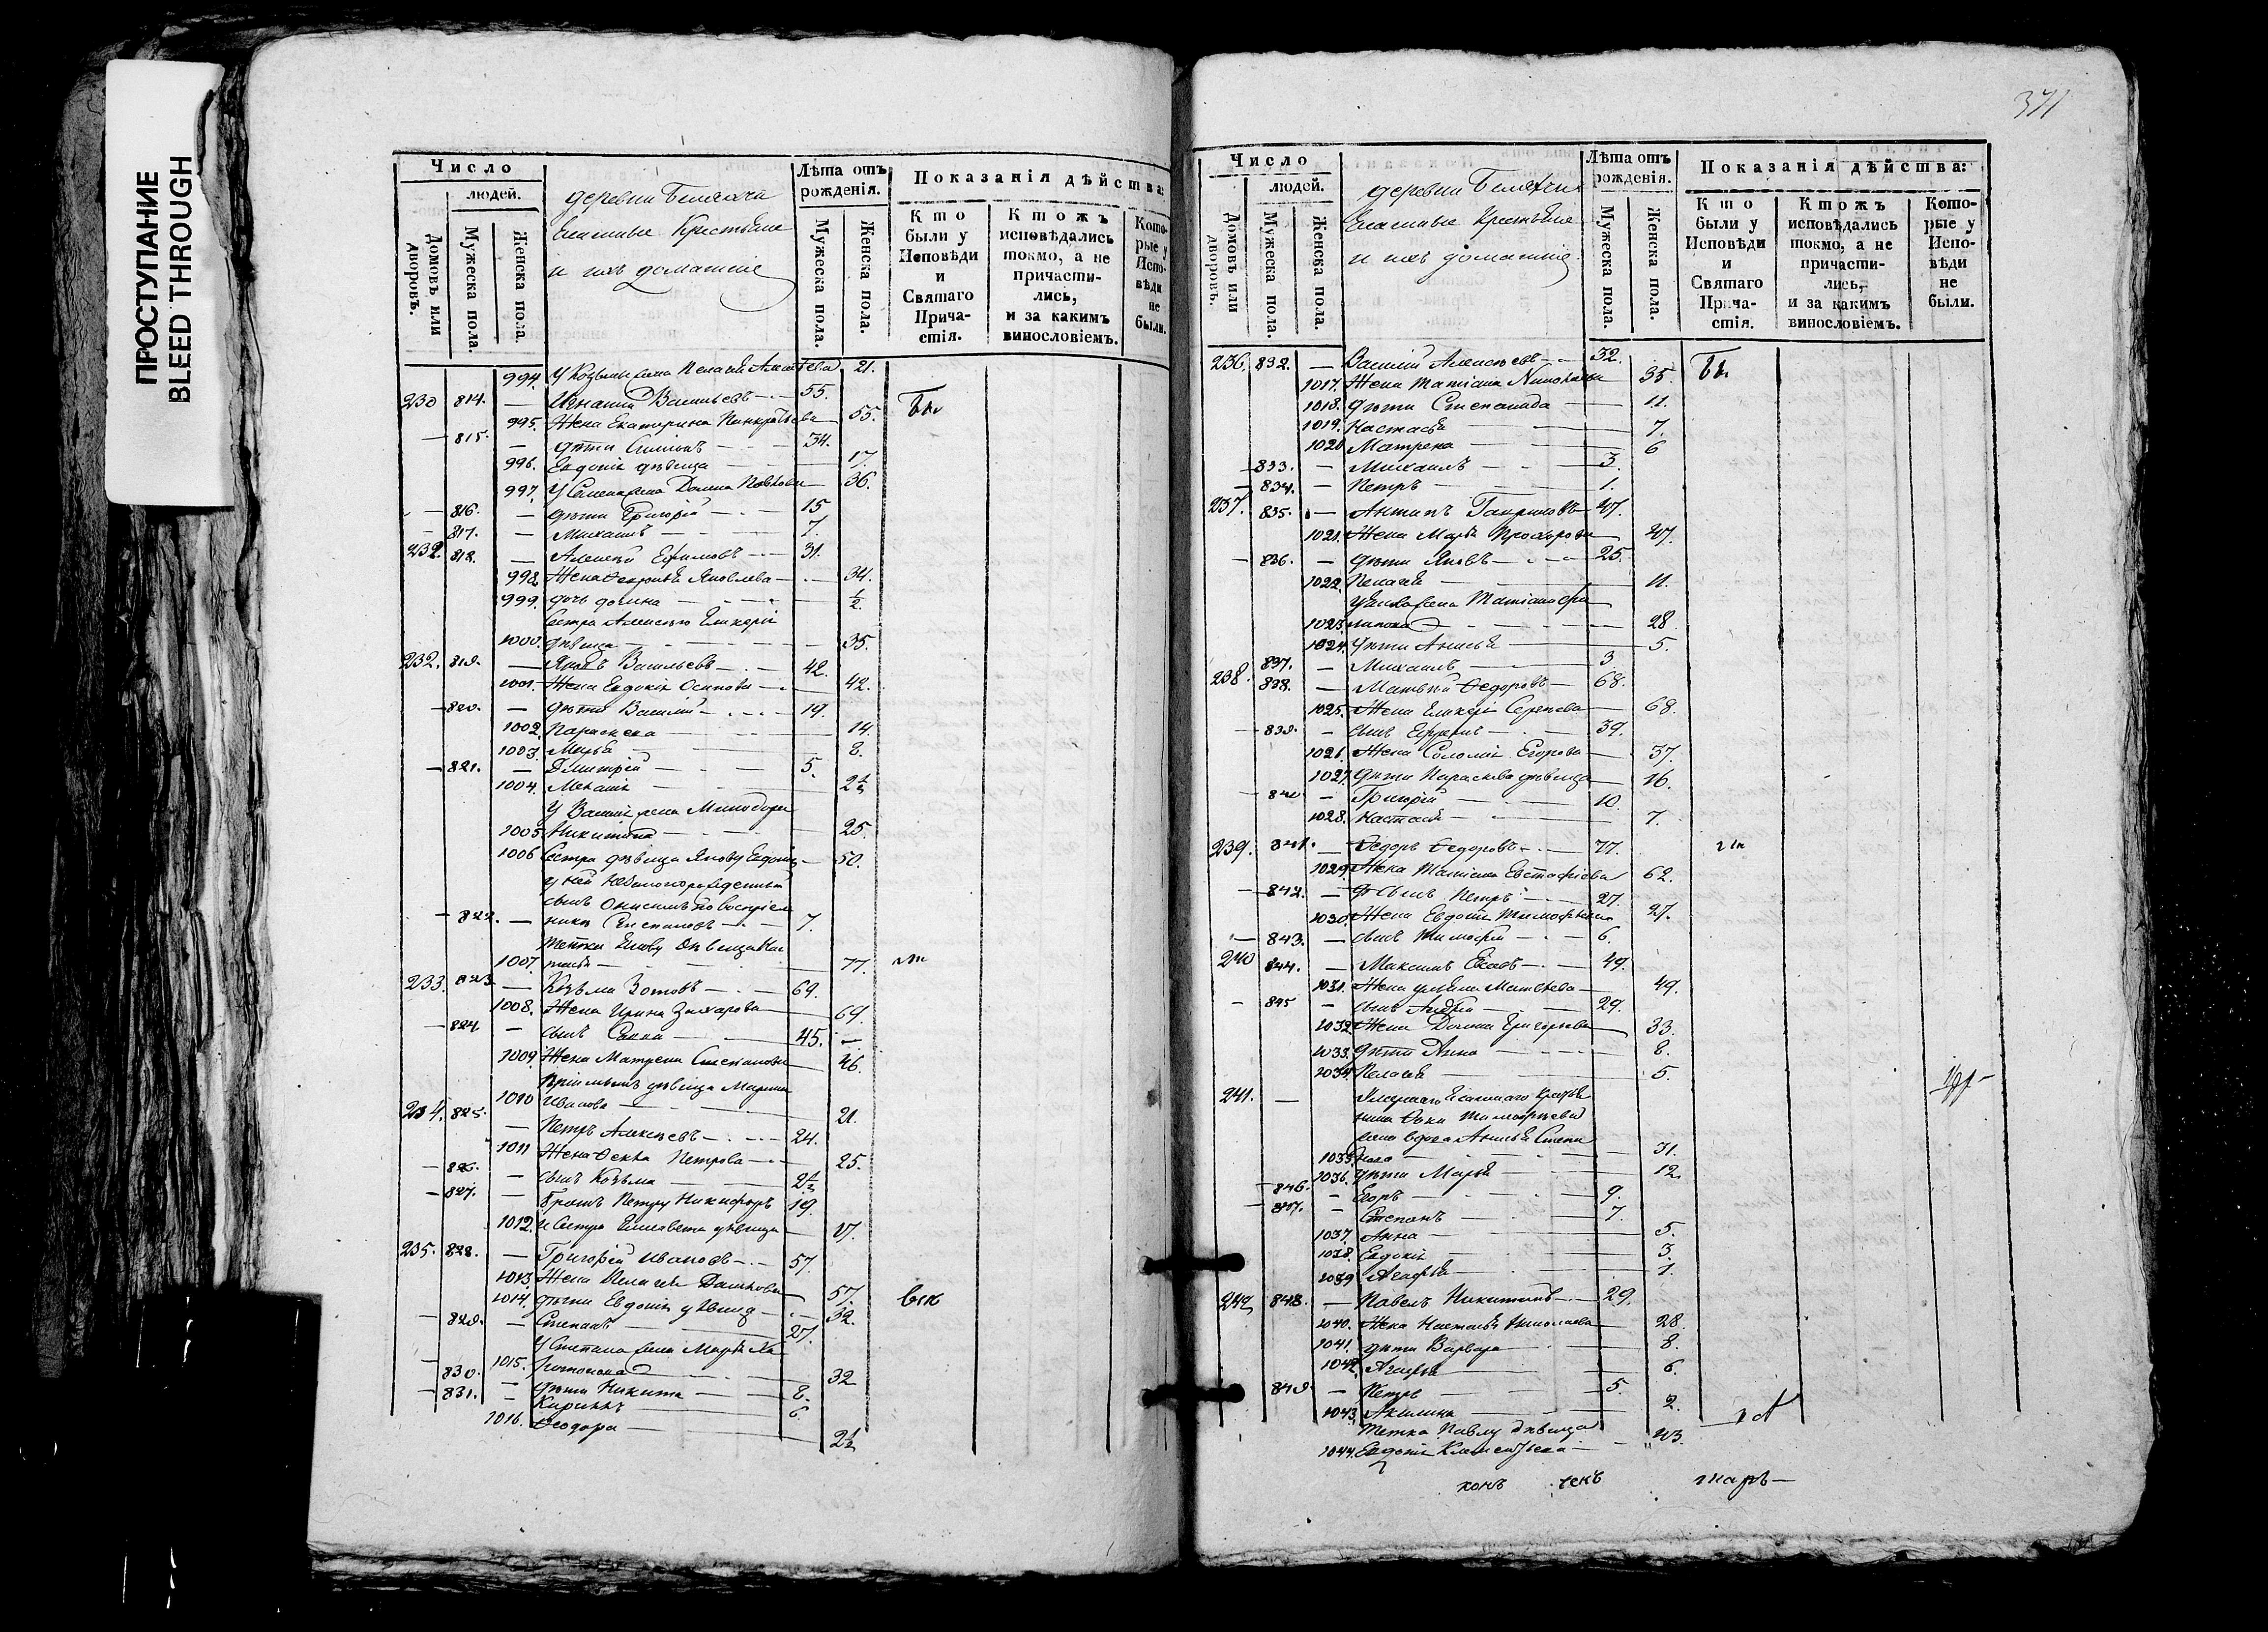 ПРОСТУПАНИЕ
BLEED THROUGH
Число
людей.
Домовъ или дворовъ.
Мужеска пола.
Женска пола.
деревни
Крестьяне
и ихъ домашніе
Лѣта отъ рожденія.
Мужеска пола.
Женска пола.
Показанія дѣйства:
Кто были у Исповѣди и Святаго Причастія.
Ктожъ исповѣдались токмо, а не причастились, и за какимъ винословіемъ.
Которые у Исповѣди не были.
994. У Козьмы жена Пелагія 21.
230 814. — Игнатій Васильевъ 55.
995. Жена Екатерина Панкратьева 55.
— 815. — дѣти Симіонъ 34.
996. Евдокія дѣвица 17.
997. У Семена жена Домна 36.
— 816. — дѣти Григорій 15
— 817. — Михаилъ 7.
232. 818. — Алексѣй Ефимовъ 31.
998. Жена Яковлева 34.
999. дочь 1/2.
Сестра Алексѣю Гликерія
1000. дѣвица 35.
232. 819. — Яковъ Васильевъ 42.
1001. Жена Евдокія Осипова 42.
— 820. — дѣти Василій 19.
1002. Параскева 14.
1003. Марья 8.
— 821. — Дмитрій 5.
1004. Меланія 2 1/2
У Василія жена Минодора
1005. Никитина 25.
1006. Сестра дѣвица Якову Евдокія 50.
у ней незаконорожденный
сынъ Онисимъ по воспріем
— 822. — нику Степановъ 7.
тетка Якову дѣвица
1007. 77.
233. 823. — Козьма Зотовъ 69.
1008. Жена Ирина Захарова 69.
— 824. — сынъ Савва 45.
1009. Жена Матрена Степанова 46.
дѣвица Марина
1010. Иванова 21.
234. 825. — Петръ Алексѣевъ 24.
1011. Жена Ѳекла Петрова 25.
— 826. — сынъ Козьма 2 1/2
— 827. — братъ Петру Никифоръ 19.
1012. и сестра Елисавета дѣвица 17.
235. 828. — Григорій Ивановъ 57.
1013. Жена Пелагія 57.
1014. дѣти Евдокія дѣвица 32.
— 829. — Степанъ 27.
У Степана жена Марья Ха
1015. ритонова 32
— 830. — дѣти Никита 8.
— 831. — Кириллъ 6.
1016. Ѳеодора 2 1/2
371
Число
людей.
Домовъ или дворовъ.
Мужеска пола.
Женска пола.
деревни
Крестьяне
и ихъ домашніе
Лѣта отъ рожденія.
Мужеска пола.
Женска пола.
Показанія дѣйства:
Кто были у Исповѣди и Святаго Причастія.
Ктожъ исповѣдались токмо, а не причастились, и за какимъ винословіемъ.
Которые у Исповѣди не были.
236. 832. — Василій Алексѣевъ 32.
1017. Жена Татіана 35.
1018. дѣти Степанида 11.
1019. Настасья 7.
1020 Матрена 6
— 833. — Михаилъ 3.
— 834. — Петръ 1.
237. 835. — Антипъ Гавриловъ 47.
1021. Жена Марья Прохорова 47.
— 836. — дѣти Яковъ 25.
1022. Пелагія 11.
У Якова жена Татіана Фи
1023. липова 28
1024. дѣти Анисья 5.
837. — Михаилъ 3
238. 838. — Матвѣй Ѳедоровъ 68.
1025. Жена Гликерія Сергѣева 68.
— 839. — сынъ Ефремъ 39.
1026. Жена Соломія Егорова 37.
1027. дѣти Параскева дѣвица 16.
— 840 — Григорій 10
1028. Настасья 7.
239. 841. — Ѳедоръ Ѳедоровъ 77.
1029. Жена Татіана Евстафіева 62.
— 842. — сынъ Петръ 27.
1030. Жена Евдокія Тимофѣева 27.
— 843. — сынъ Тимофѣй 6.
240 844. — Максимъ 49.
1031. Жена Ульяна Матвѣева 49.
— 845 — сынъ Андрей 29.
1032. Жена Домна Григорьева 33.
1033. дѣти Анна 8.
1034. Пелагія 5.
241. — Умершаго
Тимофѣева
жена вдова Анисья Степа
1035. нова 31.
1036. дѣти Марья 12.
— 846. — Егоръ 9.
— 847. — Степанъ 7.
1037. Анна 5.
1038. Евдокія 3.
1039. Агафья 1.
242. 848. — Павелъ Никитинъ 29.
1040. Жена Настасья Николаева 28.
1041. дѣти Варвара 8.
1042. Агафья 6.
849. — Петръ 5.
1043. Акилина 2.
Тетка Павлу дѣвица
1044. Евдокія 43.